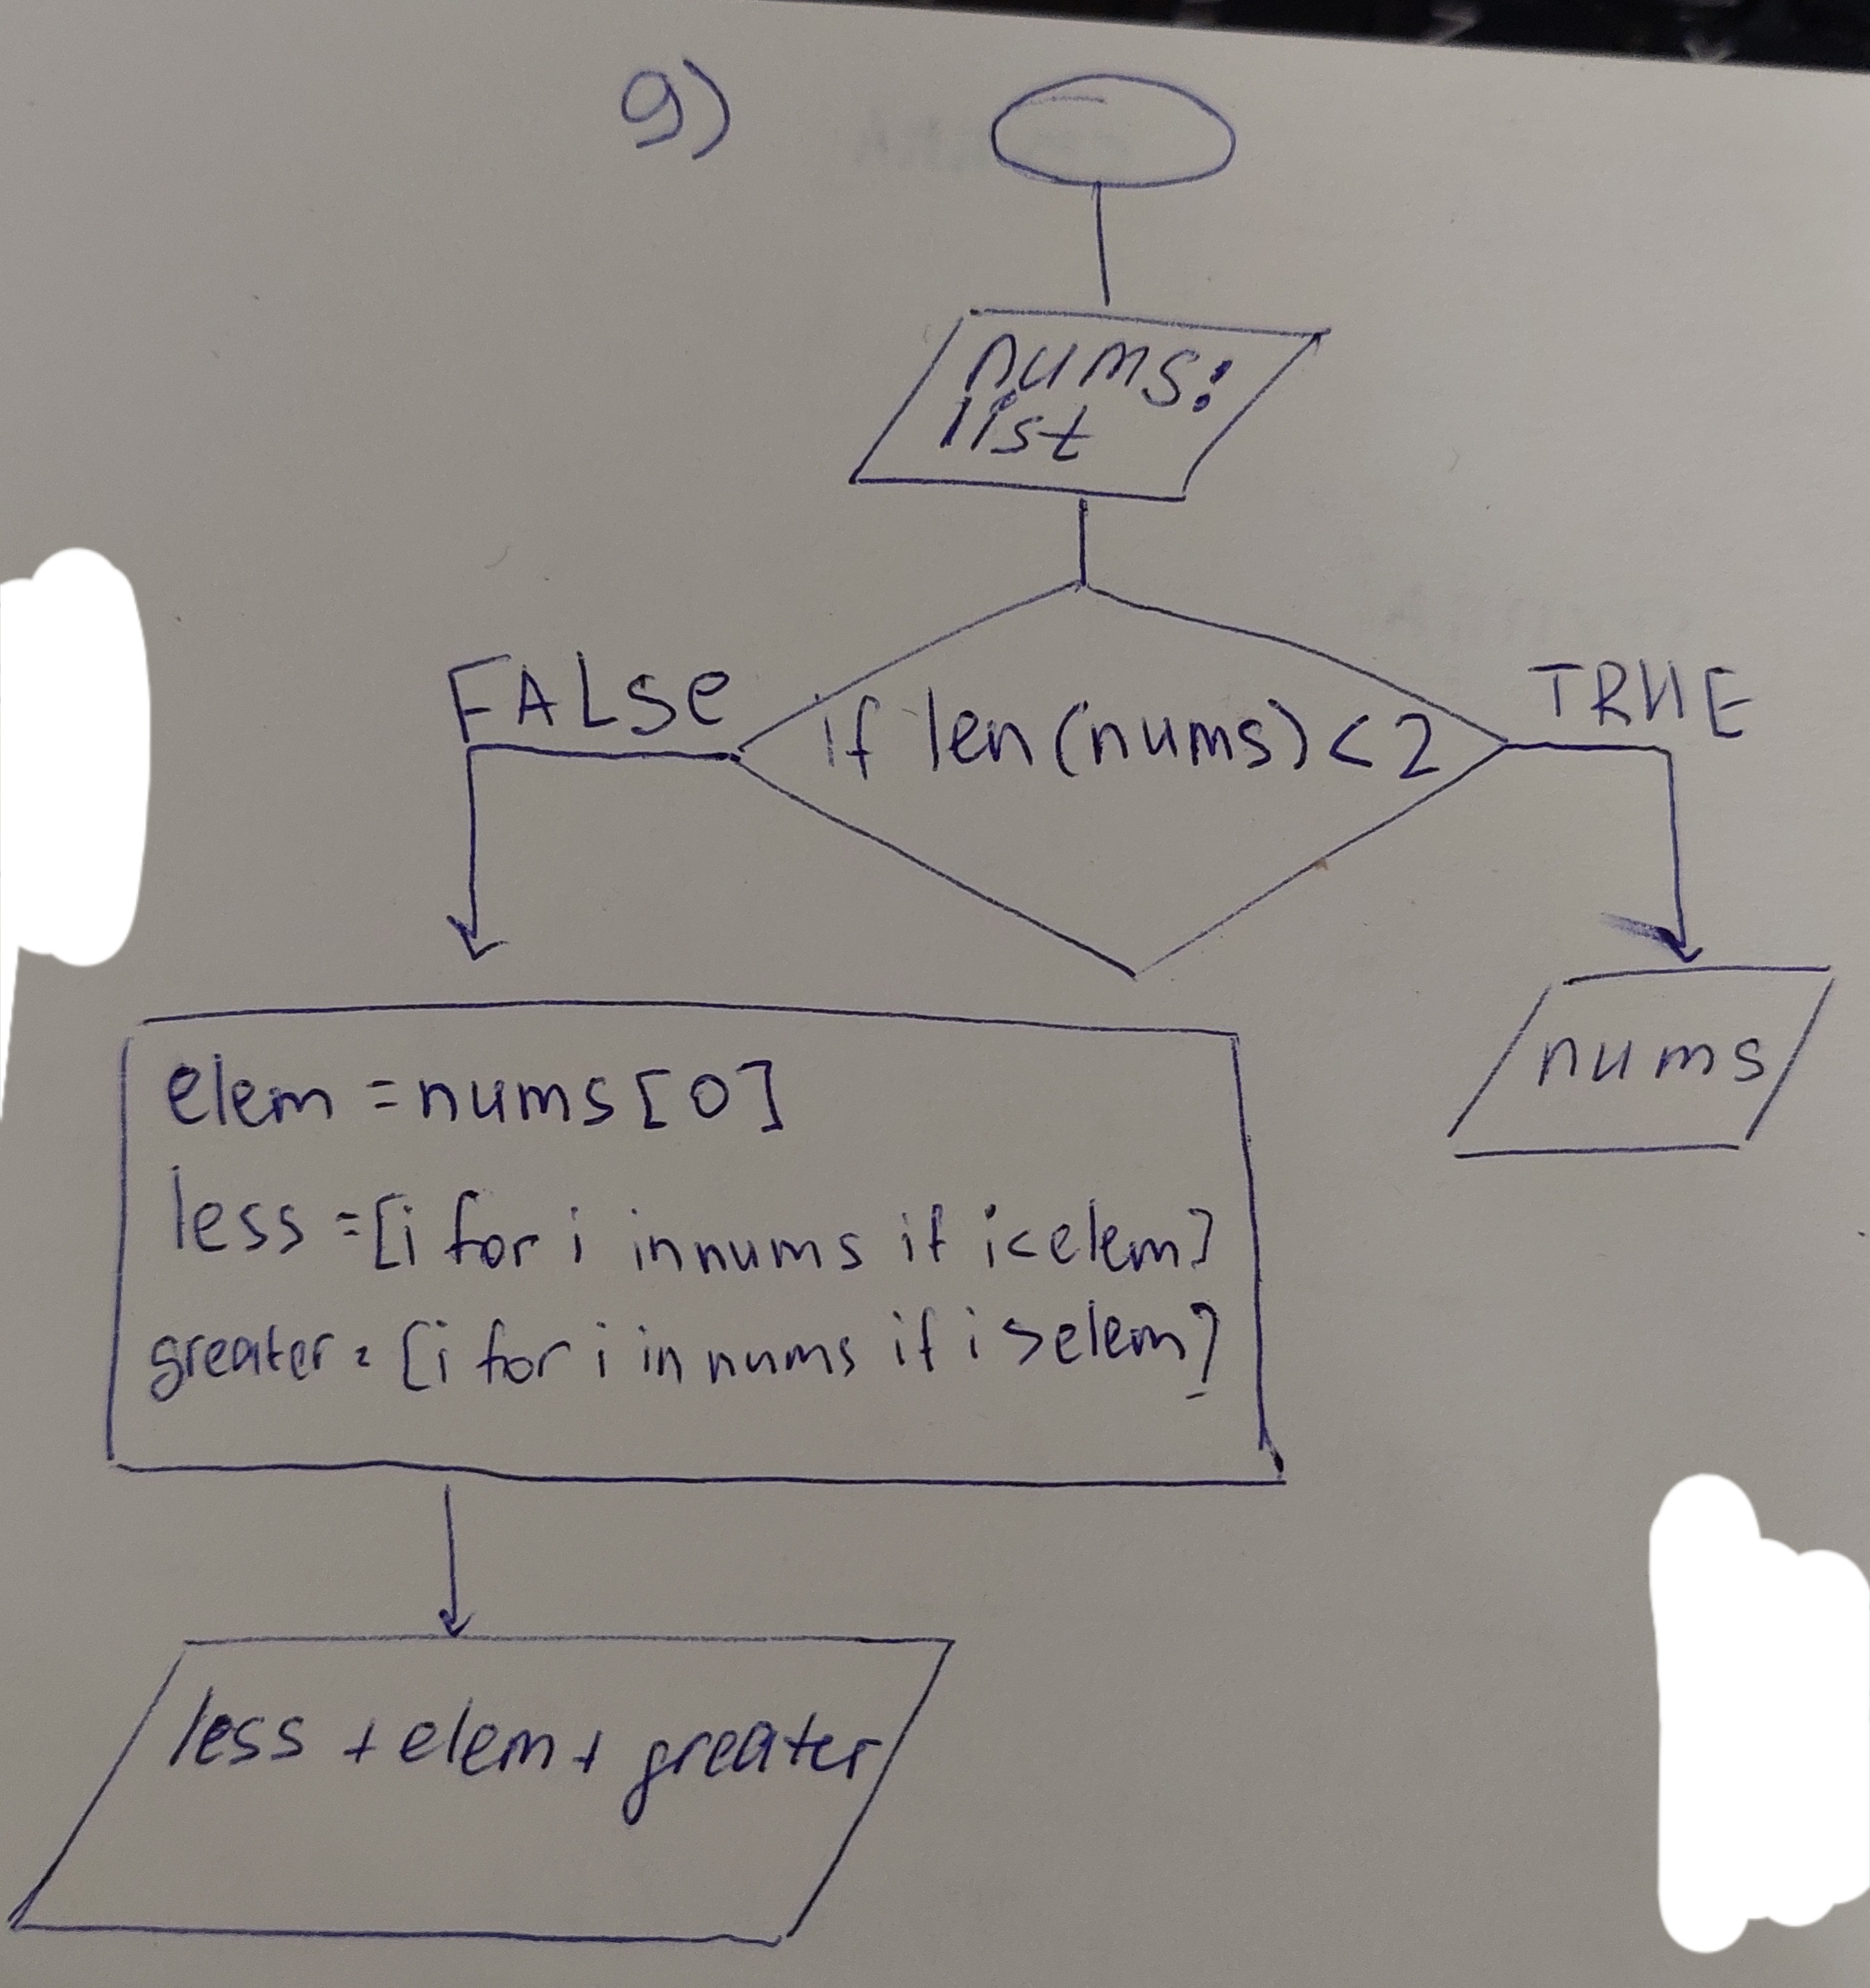 9)
nums:
list
FALSe
if len(nums) < 2
TRUE
elem = nums[0]
nums
less = [i for i in nums if i<elem]
greater = [i for i in nums if i >elem]
less + elem + greater